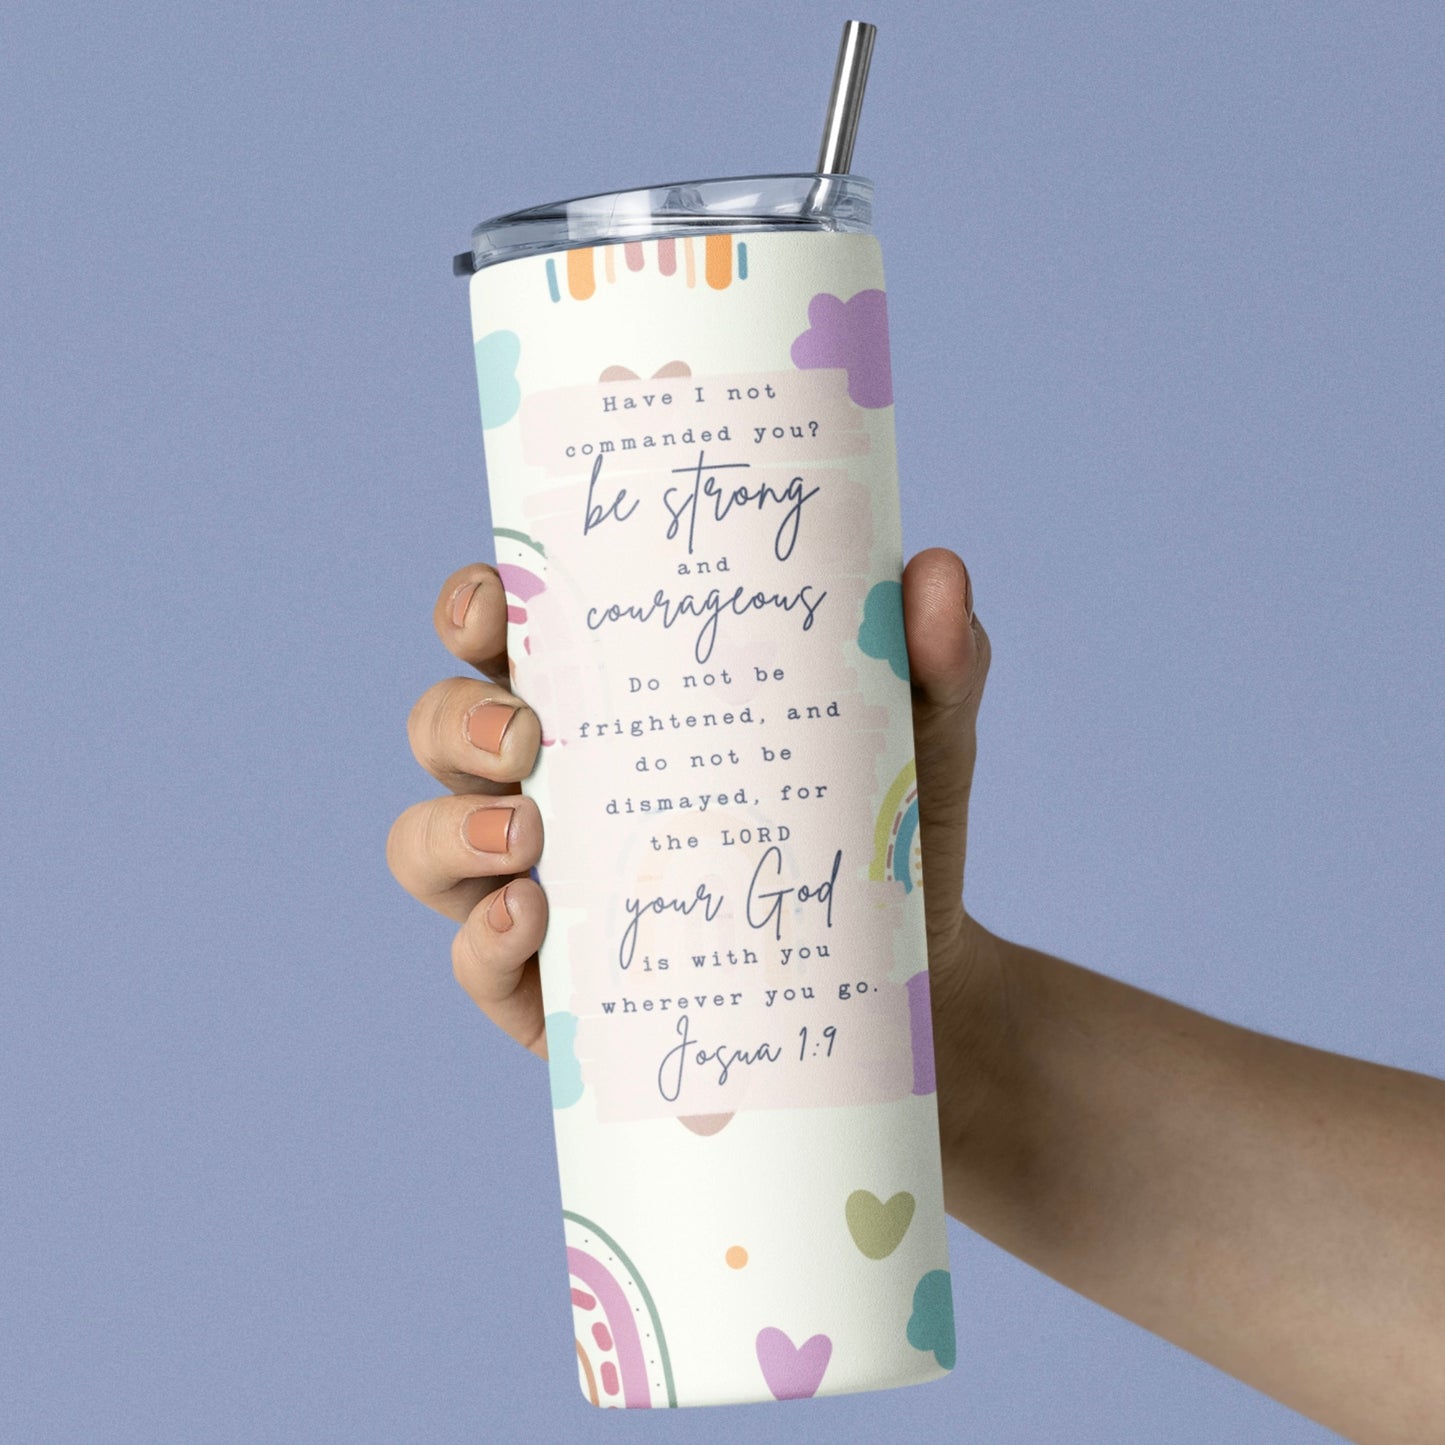 Have I not
commanded you?
be strong
and
courageous
Do not be
frightened, and
do not be
dismayed, for
the LORD
your God
is with you
wherever you go.
Josua 1:9